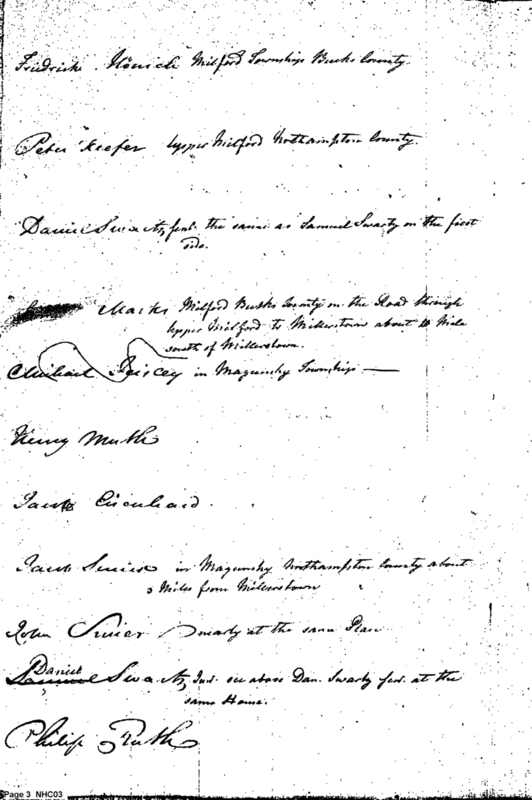 Fredrick Hönich Milford Township Bucks County.
Peter Keefer Upper Milford Northampton County.
Daniel Swartz, senr. the same as Samuel Swartz on the first
side.
Marks Milford Bucks County on the Road through
Upper Milford to Millerstown about Mile
south of Millerstown.
in Magunshy Township
Henry Muth
Jacob Eisenhard.
Jacob in Magunshy Northampton County about
3 Miles from Millerstown
John nearly at the same Place
Daniel
Samuel Swartz, Jur. see above Dan. Swartz senr. at the
same House.
Philip Ruth
Page 3 NHC03